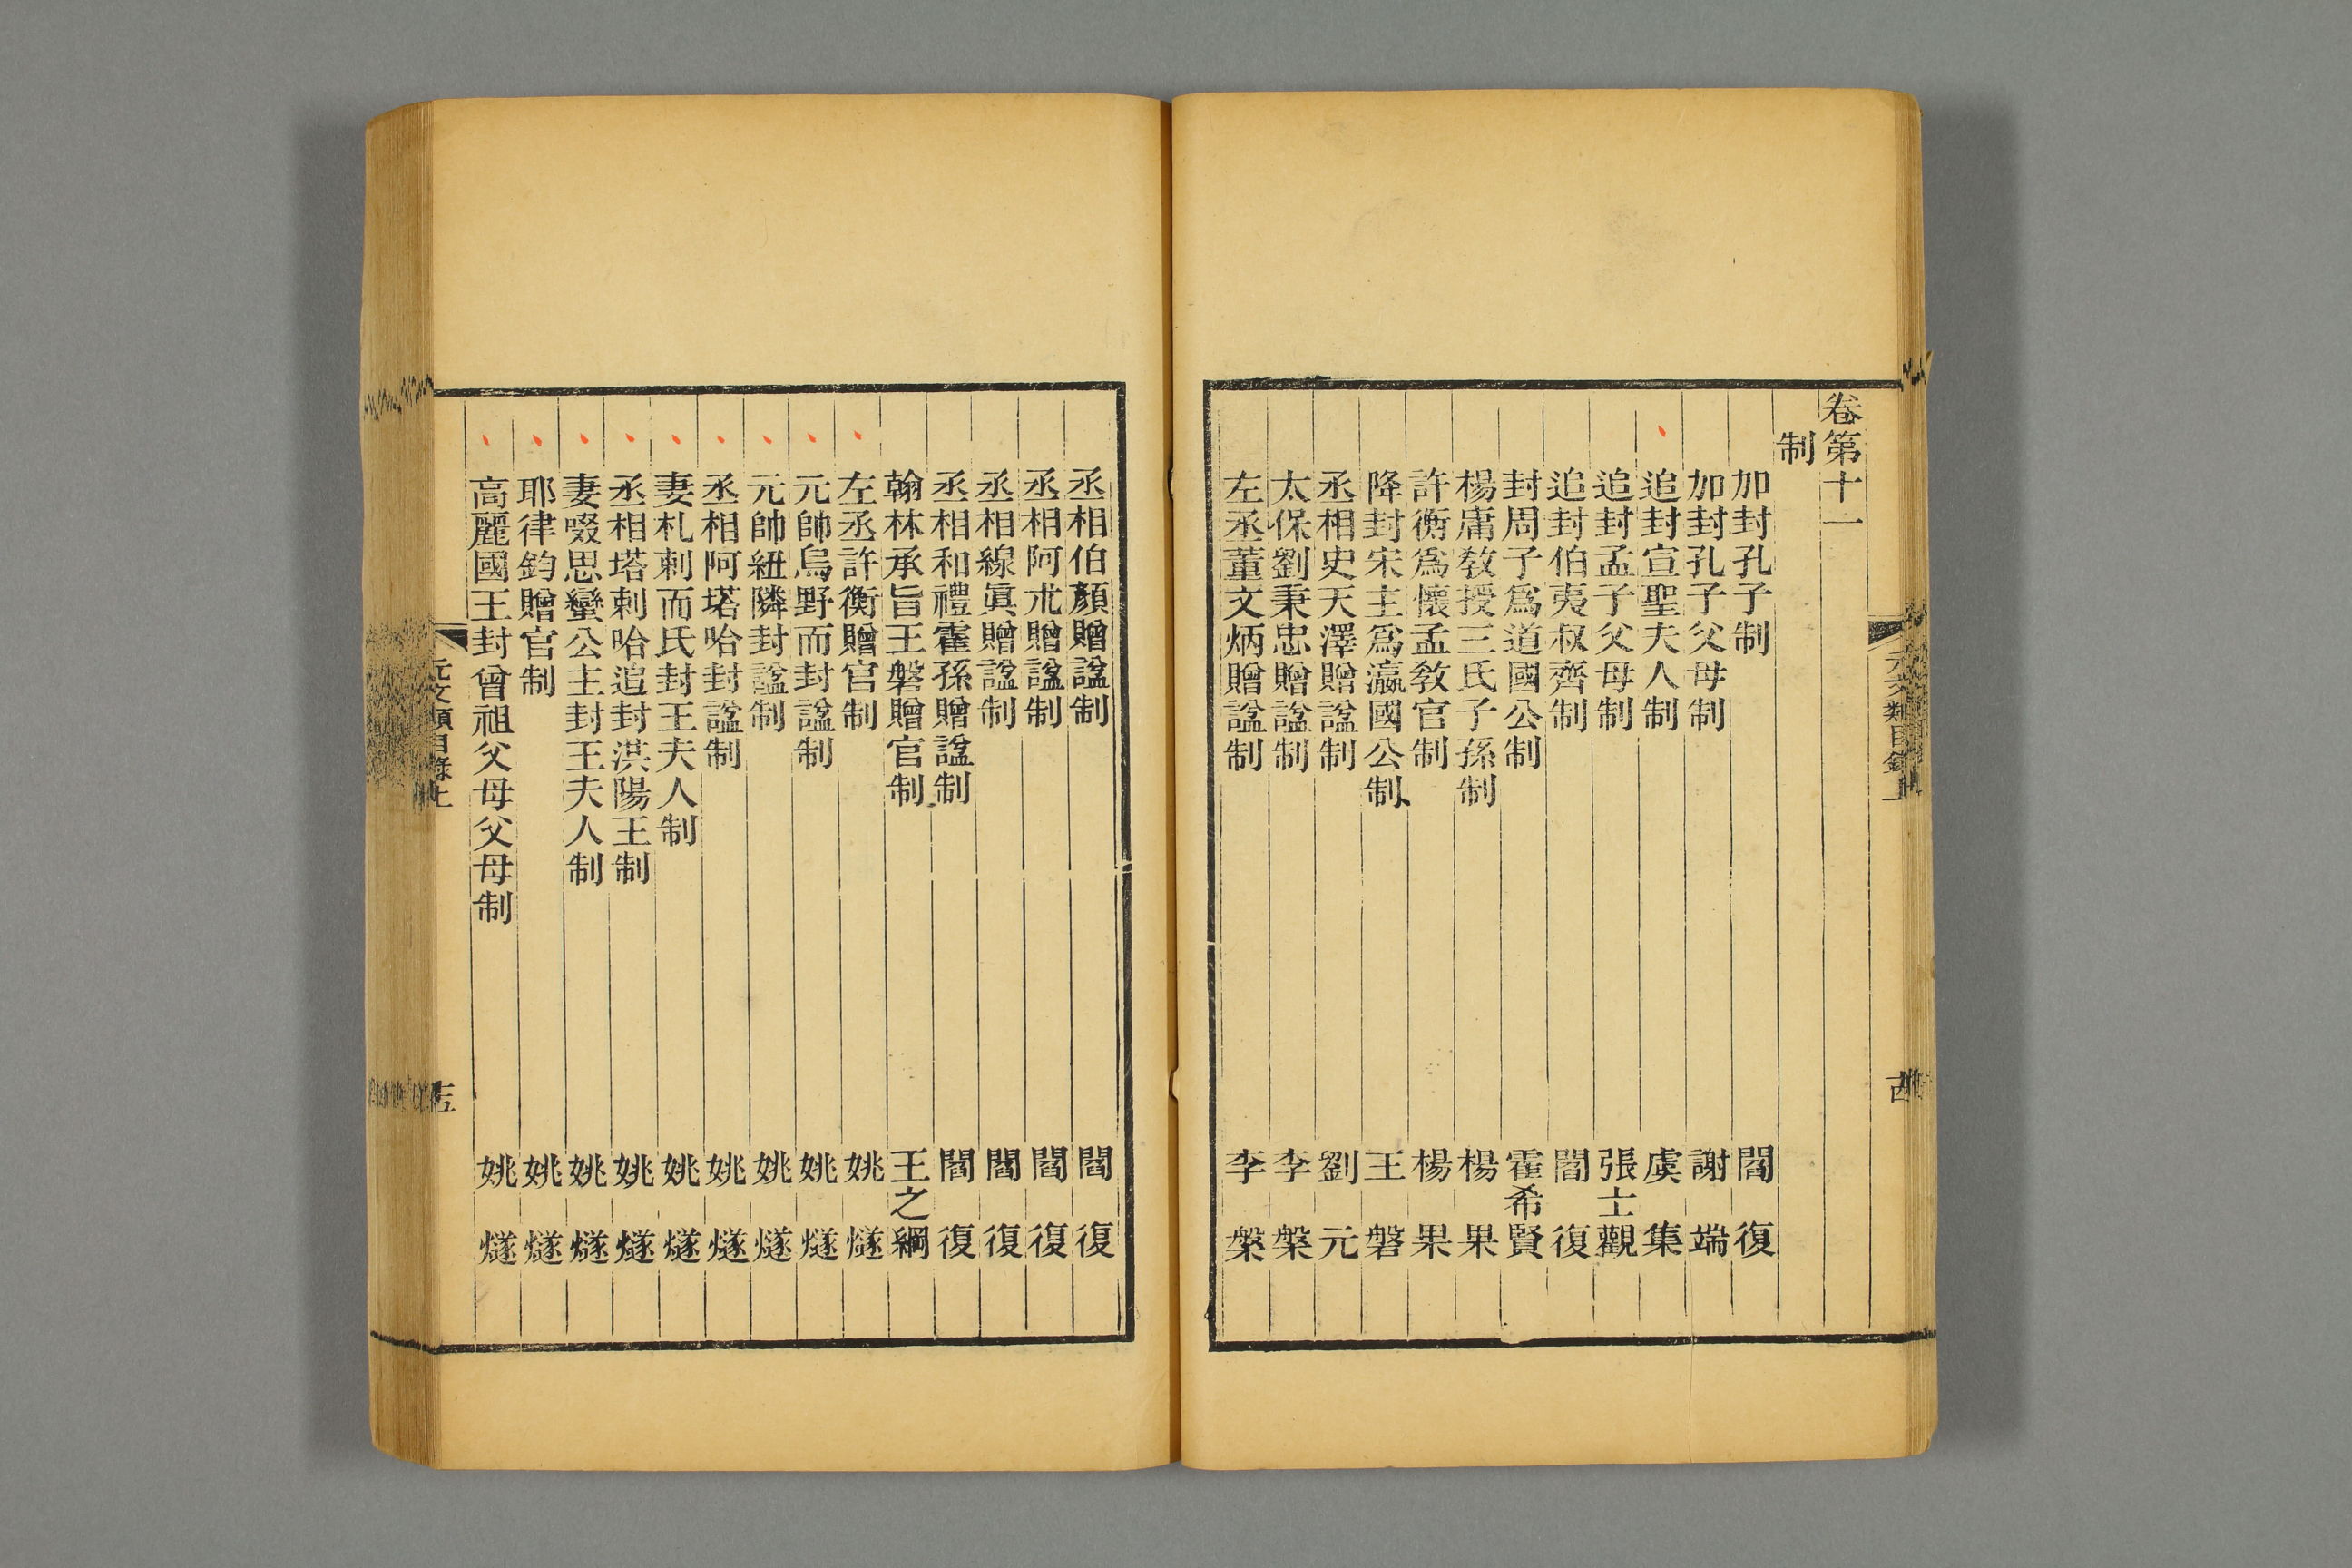 卷第十一
制
加封孔子制 閻復
加封孔子父母制 謝端
追封宣聖夫人制 虞集
追封孟子父母制 張士觀
追封伯夷叔齊制 閻復
封周子爲道國公制 霍希賢
楊庸敎授三氏子孫制 楊果
許衡爲懷孟敎官制 楊果
降封宋主爲瀛國公制 王磐
丞相史天澤贈諡制 劉元
太保劉秉忠贈諡制 李槃
左丞董文炳贈諡制 李槃
丞相伯顏贈諡制 閻復
丞相阿朮贈諡制 閻復
丞相線眞贈諡制 閻復
丞相和禮霍孫贈諡制 閻復
翰林承旨王磐贈官制 王之綱
左丞許衡贈官制 姚燧
元帥烏野而封諡制 姚燧
元帥紐隣封諡制 姚燧
丞相阿塔哈封諡制 姚燧
妻札剌而氏封王夫人制 姚燧
丞相塔剌哈追封淇陽王制 姚燧
妻啜思蠻公主封王夫人制 姚燧
耶律鈞贈官制 姚燧
高麗國王封曾祖父母父母制 姚燧
元文類目錄上